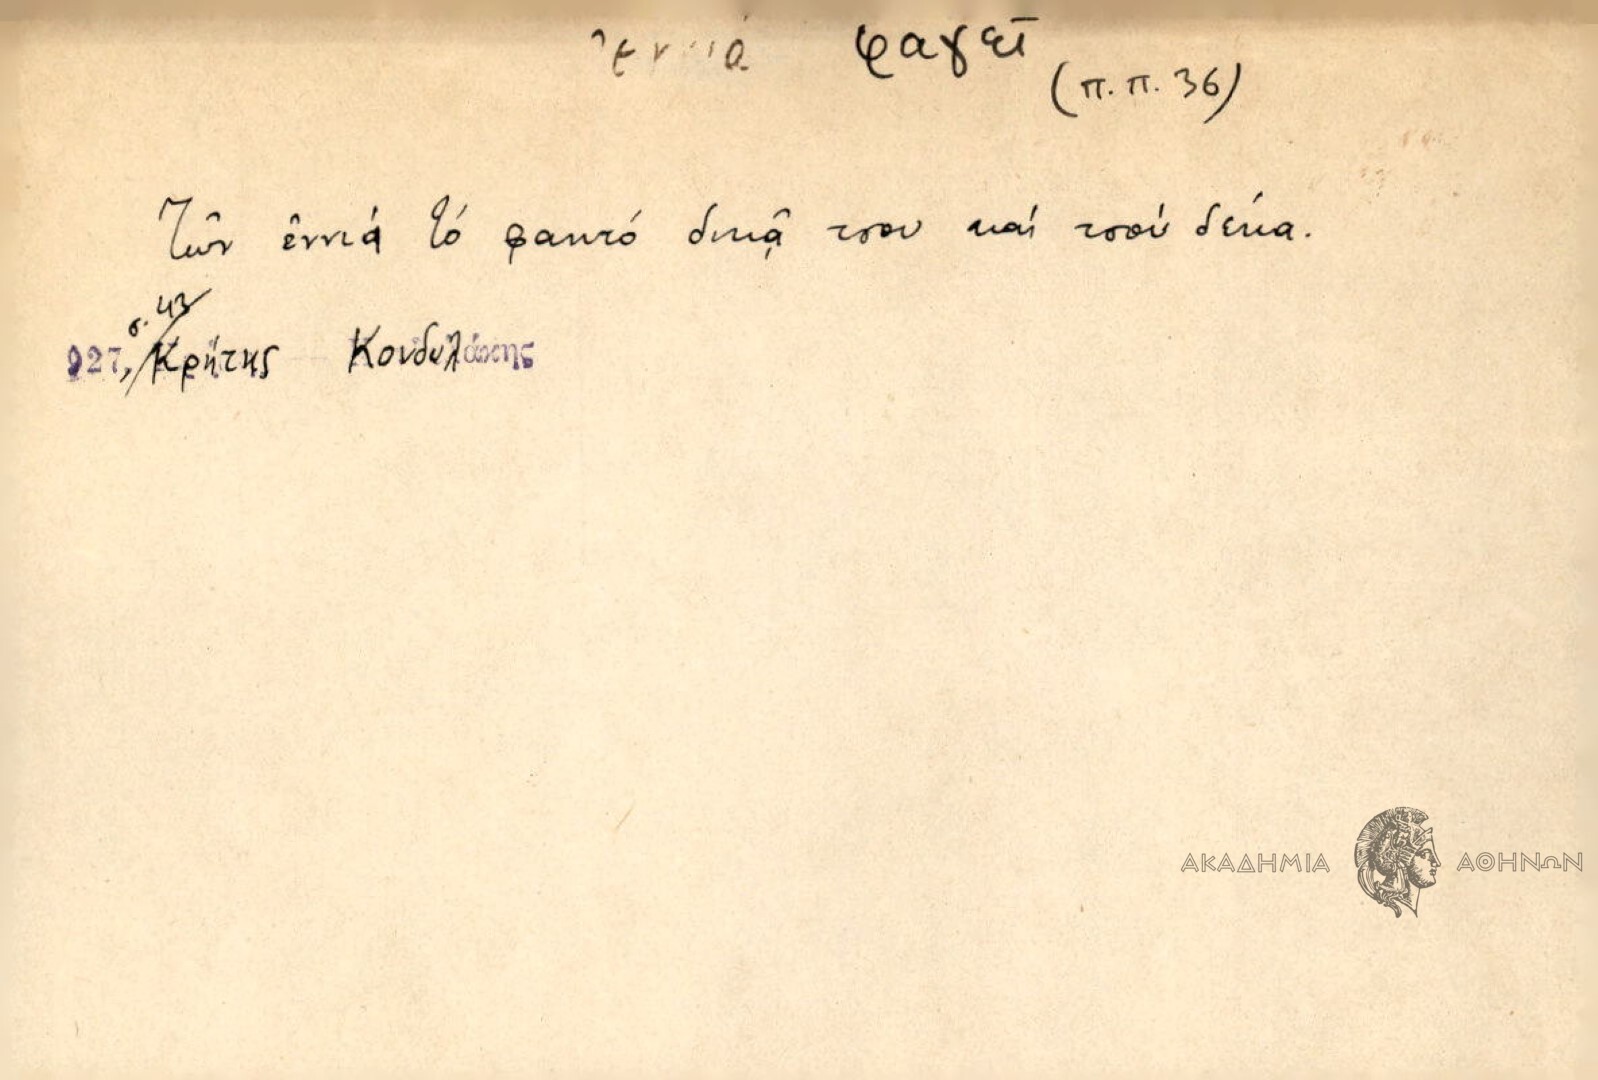 ἐννιά φαγεῖ
(π.π. 36)
Τῶν ἐννιά τό φαητό δικᾷ τσου καί τσοί δέκα.
σ. 43
927, Κρήτης Κονδυλάκης
ΑΚΑΔΗΜΙΑ ΑΘΗΝΩΝ